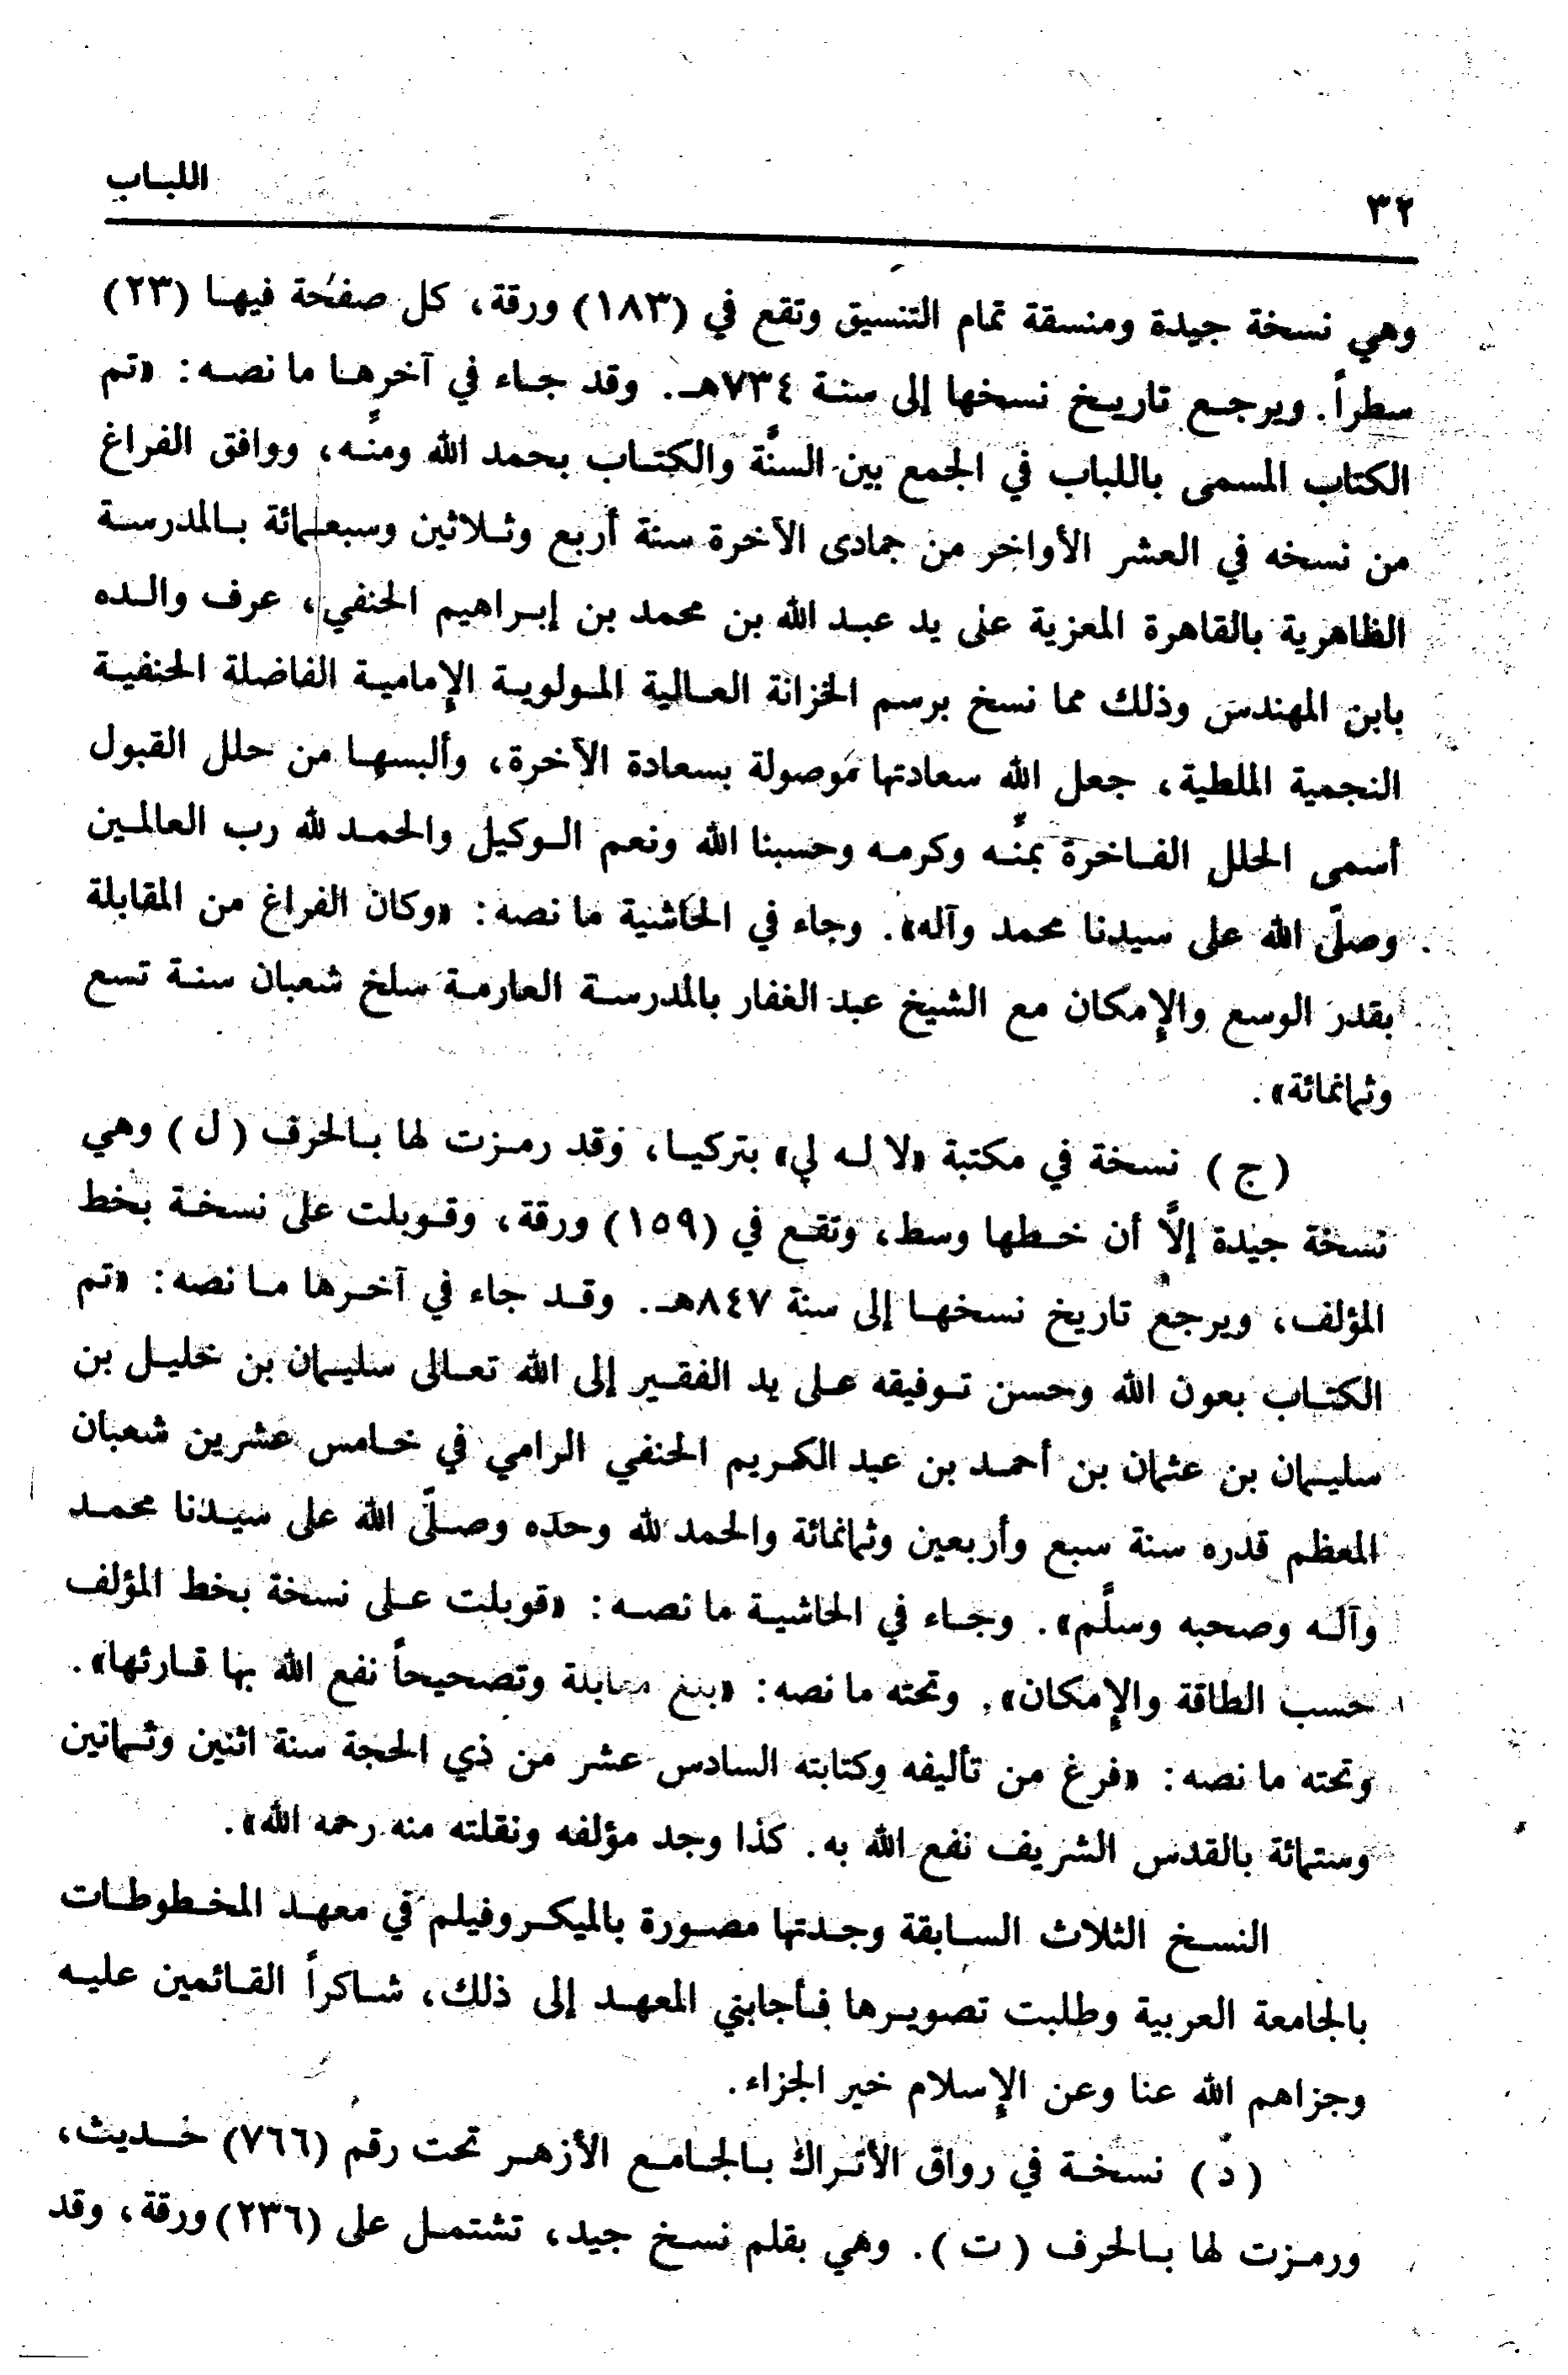 ٣٢
اللبـاب
وهي نسخة جيدة ومنسقة تمام التنسيق وتقع في (١٨٣) ورقة، كل صفحة فيهـا (٢٣)
سطراً. ويرجـع تاريـخ نسخها إلى سنـة ٧٣٤هـ. وقد جـاء في آخرِهـا ما نصـه: «تم
الكتاب المسمى باللباب في الجمع بين السنَّة والكتـاب بحمد الله ومنِّـه، ووافق الفراغ
من نسخه في العشر الأواخر من جمادى الآخرة سنة أربع وثـلاثين وسبعـمائة بـالمدرسـة
الظاهرية بالقاهرة المعزية على يد عبـد الله بن محمد بن إبـراهيم الحنفي، عرف والـده
بابن المهندس وذلك مما نسخ برسم الخزانة العـالية المـولويـة الإماميـة الفاضلة الحنفيـة
النجمية الملطية، جعل الله سعادتها موصولة بسعادة الآخرة، وألبسهـا من حلل القبول
أسمى الحلل الفـاخرة بمنِّـه وكرمـه وحسبنا الله ونعم الـوكيل والحمـد لله رب العالمـين
وصلّى الله على سيدنا محمد وآله». وجاء في الحاشية ما نصه: «وكان الفراغ من المقابلة
بقدر الوسع والإمكان مع الشيخ عبد الغفار بالمدرسـة العارمـة سلخ شعبان سنـة تسع
وثمانمائة».
(ج) نسخة في مكتبة «لا لـه لي» بتركيـا، وقد رمـزت لها بـالحرف (ل) وهي
نسخة جيدة إلَّا أن خـطها وسط، وتقـع في (١٥٩) ورقة، وقـوبلت على نسخـة بخط
المؤلف، ويرجع تاريخ نسخهـا إلى سنة ٨٤٧هـ. وقـد جاء في آخـرها مـا نصه: «تم
الكتـاب بعون الله وحسن تـوفيقه عـلى يد الفقـير إلى الله تعـالى سليـمان بن خليـل بن
سليـمان بن عثمان بن أحمـد بن عبد الكـريم الحنفي الرامي في خـامس عشرين شعبان
المعظم قدره سنة سبع وأربعين وثمانمائة والحمد لله وحده وصـلّى الله على سيـدنا محمـد
وآلـه وصحبه وسلَّم». وجـاء في الحاشيـة ما نصـه: «قوبلت عـلى نسخة بخط المؤلف
حسب الطاقة والإمكان». وتحته ما نصه: «بلغ مقابلة وتصحيحاً نفع الله بها قـارئها».
وتحته ما نصه: «فرغ من تأليفه وكتابته السادس عشر من ذي الحجة سنة اثنين وثـمانين
وستمائة بالقدس الشريف نفع الله به. كذا وجد مؤلفه ونقلته منه رحمه الله».
النسـخ الثلاث السـابقة وجـدتها مصـورة بالميكـروفيلم في معهـد المخـطوطـات
بالجامعة العربية وطلبت تصويـرها فـأجابني المعهـد إلى ذلك، شـاكراً القـائمين عليـه
وجزاهم الله عنا وعن الإسلام خير الجزاء.
(د) نسخـة في رواق الأتـراك بـالجـامـع الأزهـر تحت رقم (٧٦٦) حـديث،
ورمـزت لها بـالحرف (ت). وهي بقلم نسـخ جيد، تشتمـل على (٢٣٦) ورقة، وقد